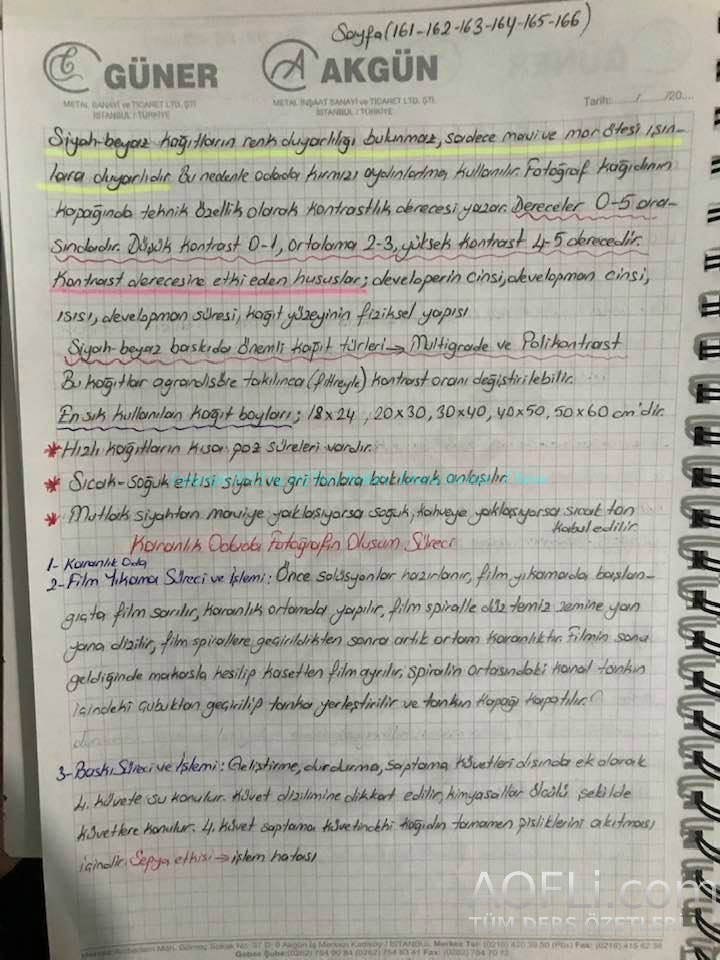 Sayfa (161-162-163-164-165-166)
GÜNER
METAL SANAYİ ve TİCARET LTD. ŞTİ.
İSTANBUL / TÜRKİYE
AKGÜN
METAL İNŞAAT SANAYİ ve TİCARET LTD. ŞTİ.
İSTANBUL / TÜRKİYE
Tarih: ..../..../20....
Siyah-beyaz kağıtların renk duyarlılığı bulunmaz, sadece mavi ve mor ötesi ışın-
lara duyarlıdır. Bu nedenle odada kırmızı aydınlatma kullanılır. Fotoğraf kağıdının
kapağında teknik özellik olarak kontrastlık derecesi yazar. Dereceler 0-5 ara-
sındadır. Düşük kontrast 0-1, ortalama 2-3, yüksek kontrast 4-5 derecedir.
Kontrast derecesine etki eden hususlar; developerin cinsi, developman cinsi,
ısısı, developman süresi, kağıt yüzeyinin fiziksel yapısı
Siyah-beyaz baskıda önemli kağıt türleri → Multigrade ve Polikontrast
Bu kağıtlar agrandisöre takılınca (filtreyle) kontrast oranı değiştirilebilir.
En sık kullanılan kağıt boyları; 18x24, 20x30, 30x40, 40x50, 50x60 cm'dir.
* Hızlı kağıtların kısa poz süreleri vardır.
* Sıcak-soğuk etkisi siyah ve gri tonlara bakılarak anlaşılır.
* Mutlak siyahtan maviye yaklaşıyorsa soğuk, kahveye yaklaşıyorsa sıcak ton
kabul edilir
Karanlık Odada Fotoğrafın Oluşum Süreci
1- Karanlık Oda
2- Film Yıkama Süreci ve İşlemi: Önce solüsyonlar hazırlanır, film yıkamada başlan-
gıçta film sarılır, karanlık ortamda yapılır, film spiralle düz temiz zemine yan
yana dizilir, film spirallere geçirildikten sonra artık ortam karanlıktır. Filmin sona
geldiğinde makasla kesilip kasetten film ayrılır, spiralin ortasındaki kanal tankın
içindeki çubuktan geçirilip tanka yerleştirilir ve tankın kapağı kapatılır.
3- Baskı Süreci ve İşlemi: Geliştirme, durdurma, saptama küvetleri dışında ek olarak
4. küvete su konulur. Küvet dizilimine dikkat edilir, kimyasallar ölçülü şekilde
küvetlere konulur. 4. küvet saptama küvetindeki kağıdın tamamen pisliklerini akıtması
içindir. Sepya etkisi → işlem hatası
AOFLi.com
TÜM DERS ÖZETLERİ